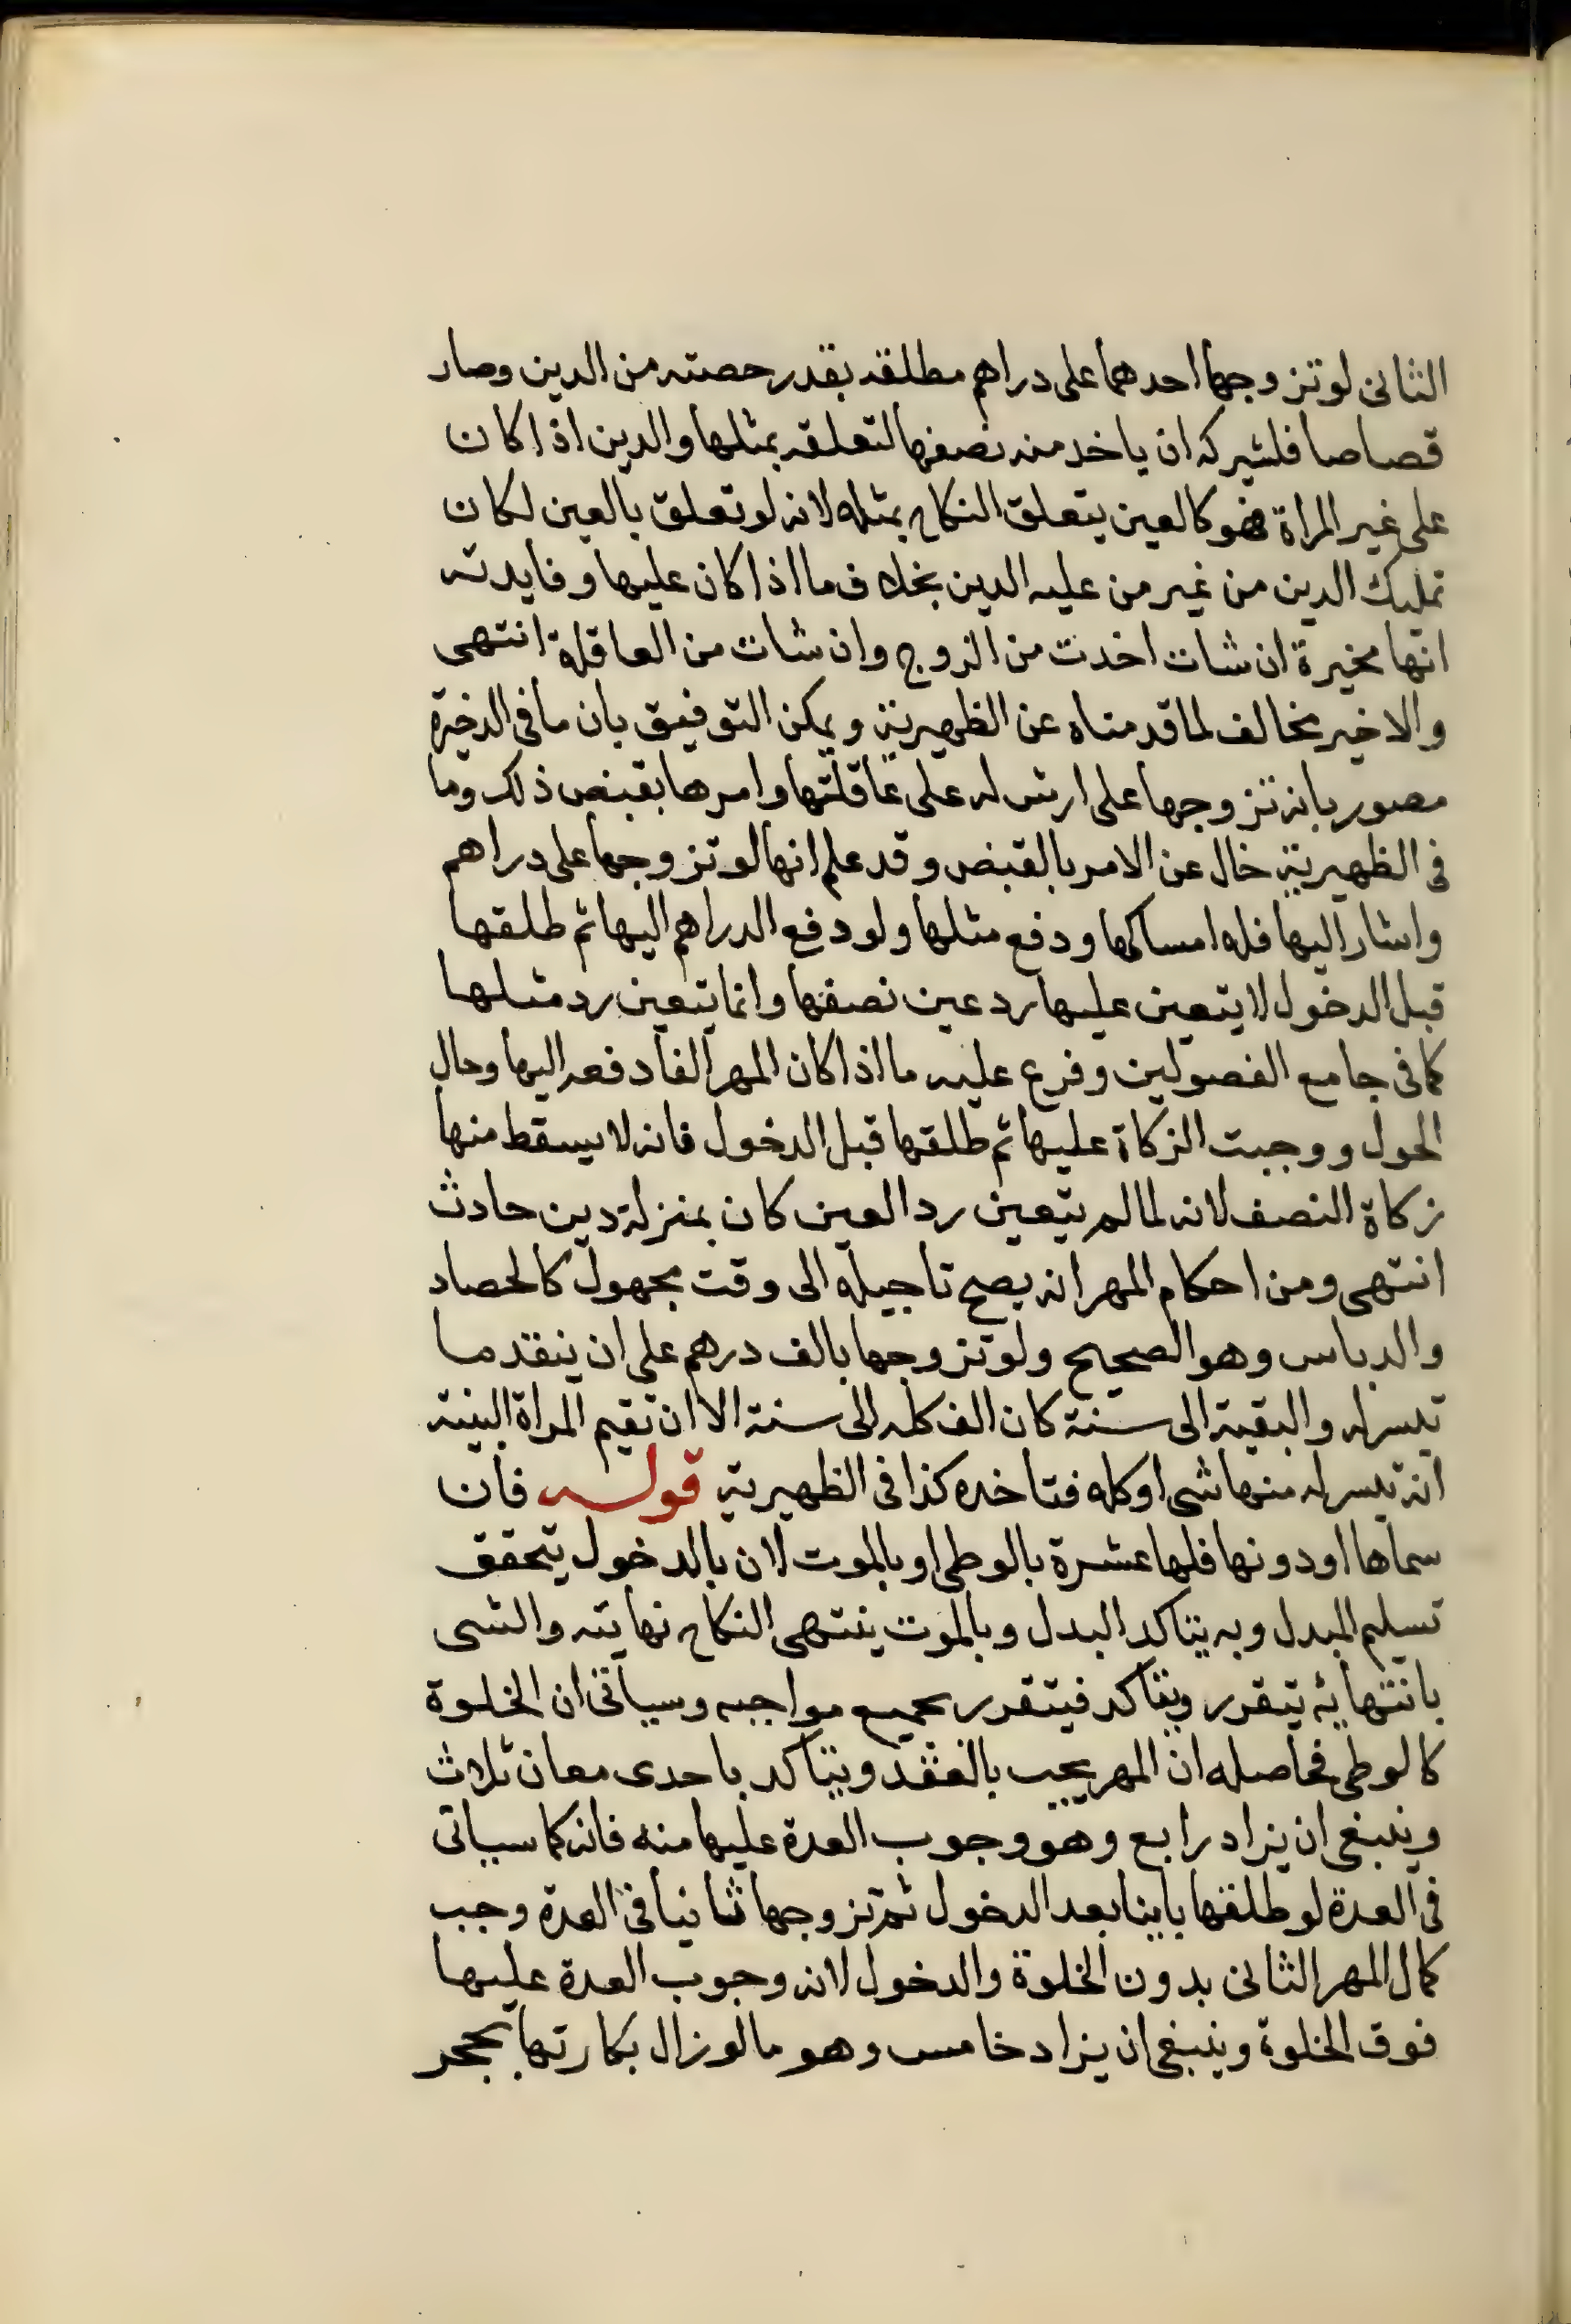 الثانى لو تزوجها احدهما على دراهم مطلقه بقدر حصته من الدين وصار
قصاصا فلشيركه ان ياخد منه نصفها لتعلقه بمثلها والدين اذا كان
على غير المراة فهو كالعين يتعلق النكاح بمثله لانه لو تعلق بالعين لكان
تمليك الدين من غير من عليه الدين بخلاف ما اذا كان عليها وفايدته
انها مخيرة ان شات اخدت من الزوج وان شات من العاقلة انتهى
والاخير مخالف لما قدمناه عن الظهيرية ويمكن التوفيق بان ما فى الدخيرة
مصور بانه تزوجها على ارش له على عاقلتها وامرها بقبض ذلك وما
فى الظهيرية خال عن الامر بالقبض وقد علم انها لو تزوجها على دراهم
واشار اليها فله امساكها ودفع مثلها ولو دفع الدراهم اليها ثم طلقها
قبل الدخول لا يتعين عليها رد عين نصفها وانما يتعين رد مثلها
كما فى جامع الفصولين وفرع عليه ما اذا كان المهر الفا دفعه اليها وحال
الحول ووجبت الزكاة عليها ثم طلقها قبل الدخول فانه لا يسقط منها
زكاة النصف لانه لما لم يتعين رد العين كان بمنزلة دين حادث
انتهى ومن احكام المهر انه يصح تاجيله الى وقت مجهول كالحصاد
والدياس وهو الصحيح ولو تزوجها بالف درهم على ان ينقد ما
تيسر له والبقية الى سنة كان الف كله الى سنة الا ان تقيم المراة البينة
انه تيسر له منها شى او كله فتاخده كذا فى الظهيرية قوله فان
سماها او دونها فلها عشرة بالوطى او بالموت لان بالدخول يتحقق
تسليم المبدل وبه يتاكد البدل وبالموت ينتهى النكاح نهايته والشى
بانتهائه يتقرر ويتاكد فيتقرر بجميع مواجبه وسياتى ان الخلوة
كالوطى فحاصله ان المهر يجب بالعقد ويتاكد باحدى معان ثلاث
وينبغى ان يزاد رابع وهو وجوب العدة عليها منه فانه كما سياتى
فى العدة لو طلقها باينا بعد الدخول ثم تزوجها ثانيا فى العدة وجب
كمال المهر الثانى بدون الخلوة والدخول لانه وجوب العدة عليها
فوق الخلوة وينبغى ان يزاد خامس وهو ما لو زال بكارتها بحجر